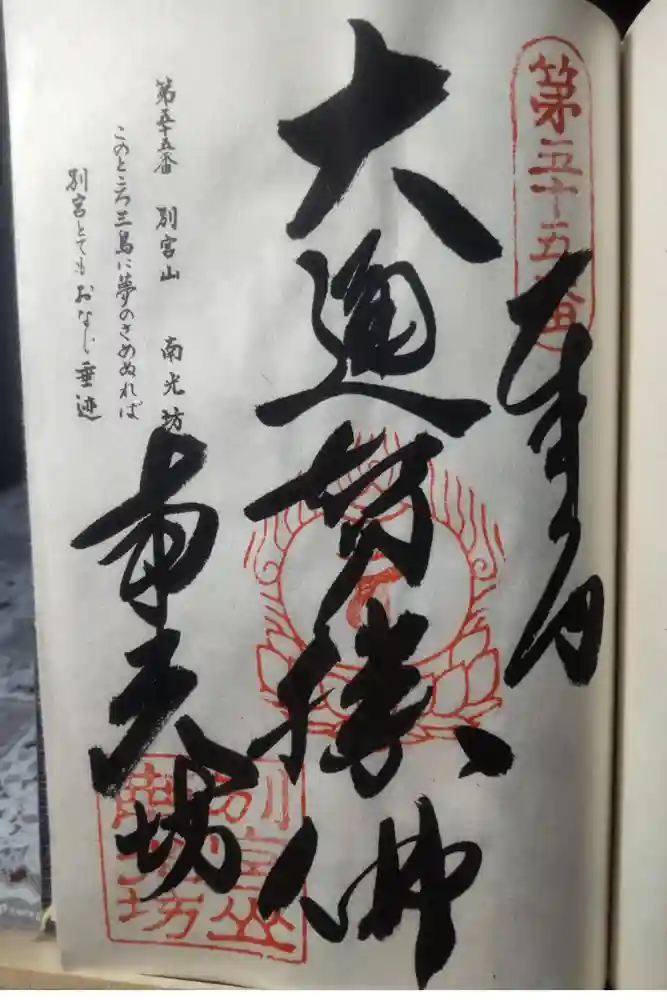 第五十五番
奉納
大通智勝佛
南光坊
第五十五番 別宮山 南光坊
このところ三島に夢のさめぬれば
別宮とてもおなじ垂迹
別宮山
南光坊